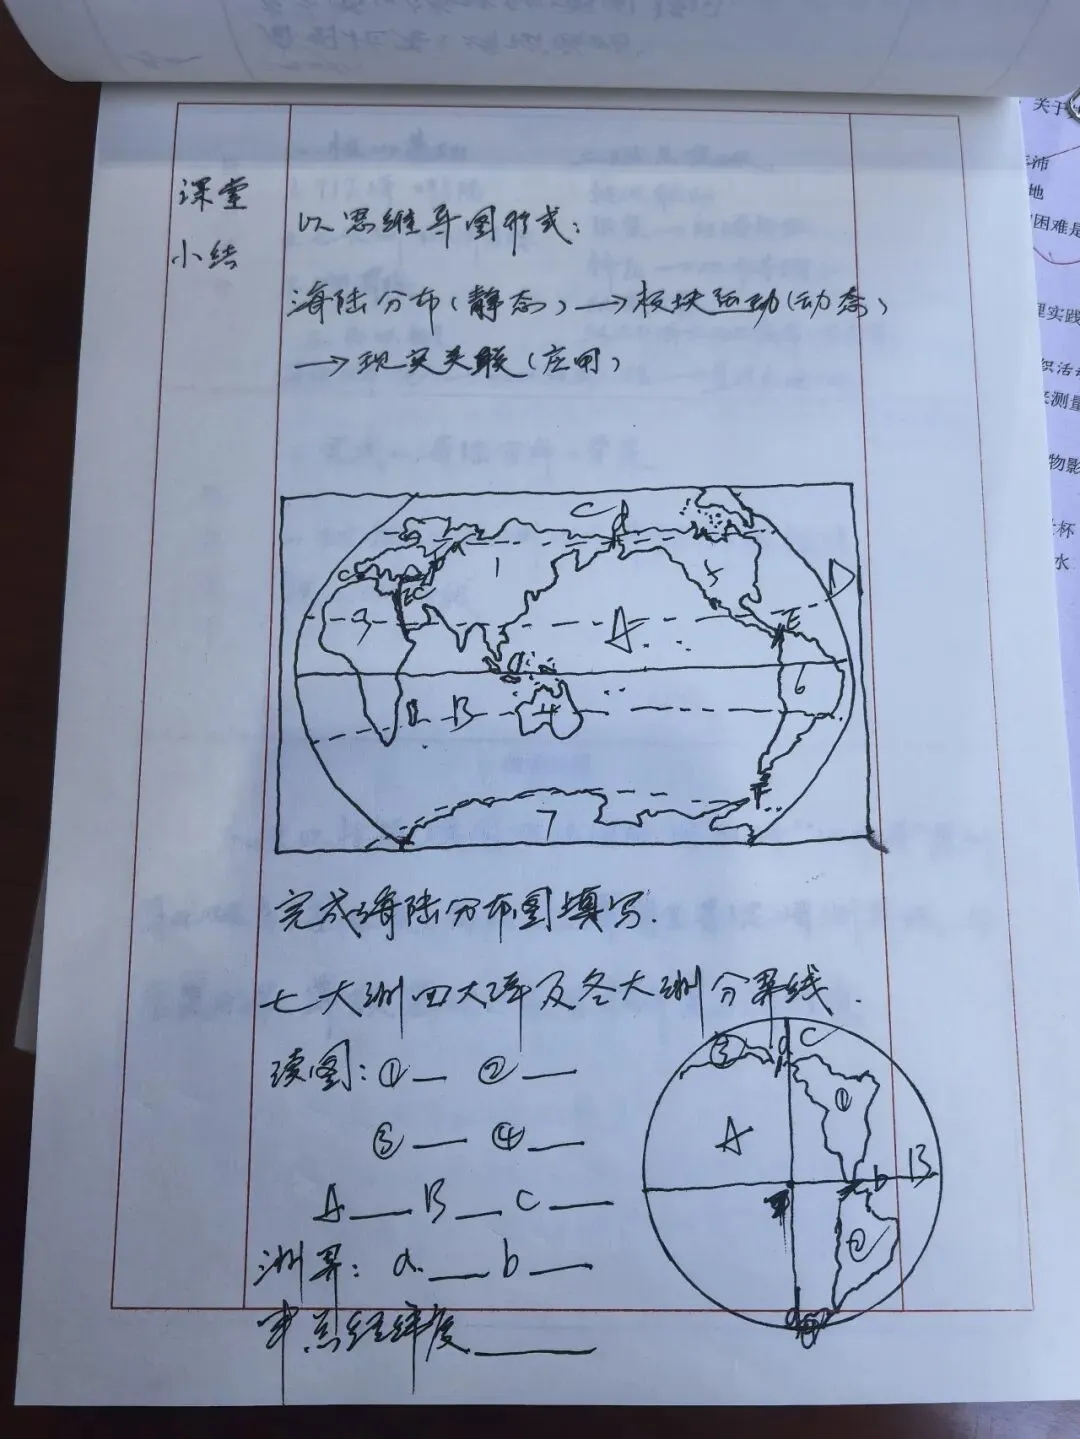 课堂
小结
以思维导图形式：
海陆分布（静态）→板块运动（动态）
→现实关联（应用）
C d
1 5 D
3 A E
6
B 4
F
7
完成海陆分布图填写.
七大洲四大洋及各大洲分界线.
读图：①__ ②__
③__ ④__
A__ B__ C__
洲界：a.__ b__
甲点经纬度____
③ a C
①
A b B
甲
②
关于
沛
地
困难是
理实践
织活动
来测量
物影
杯
水